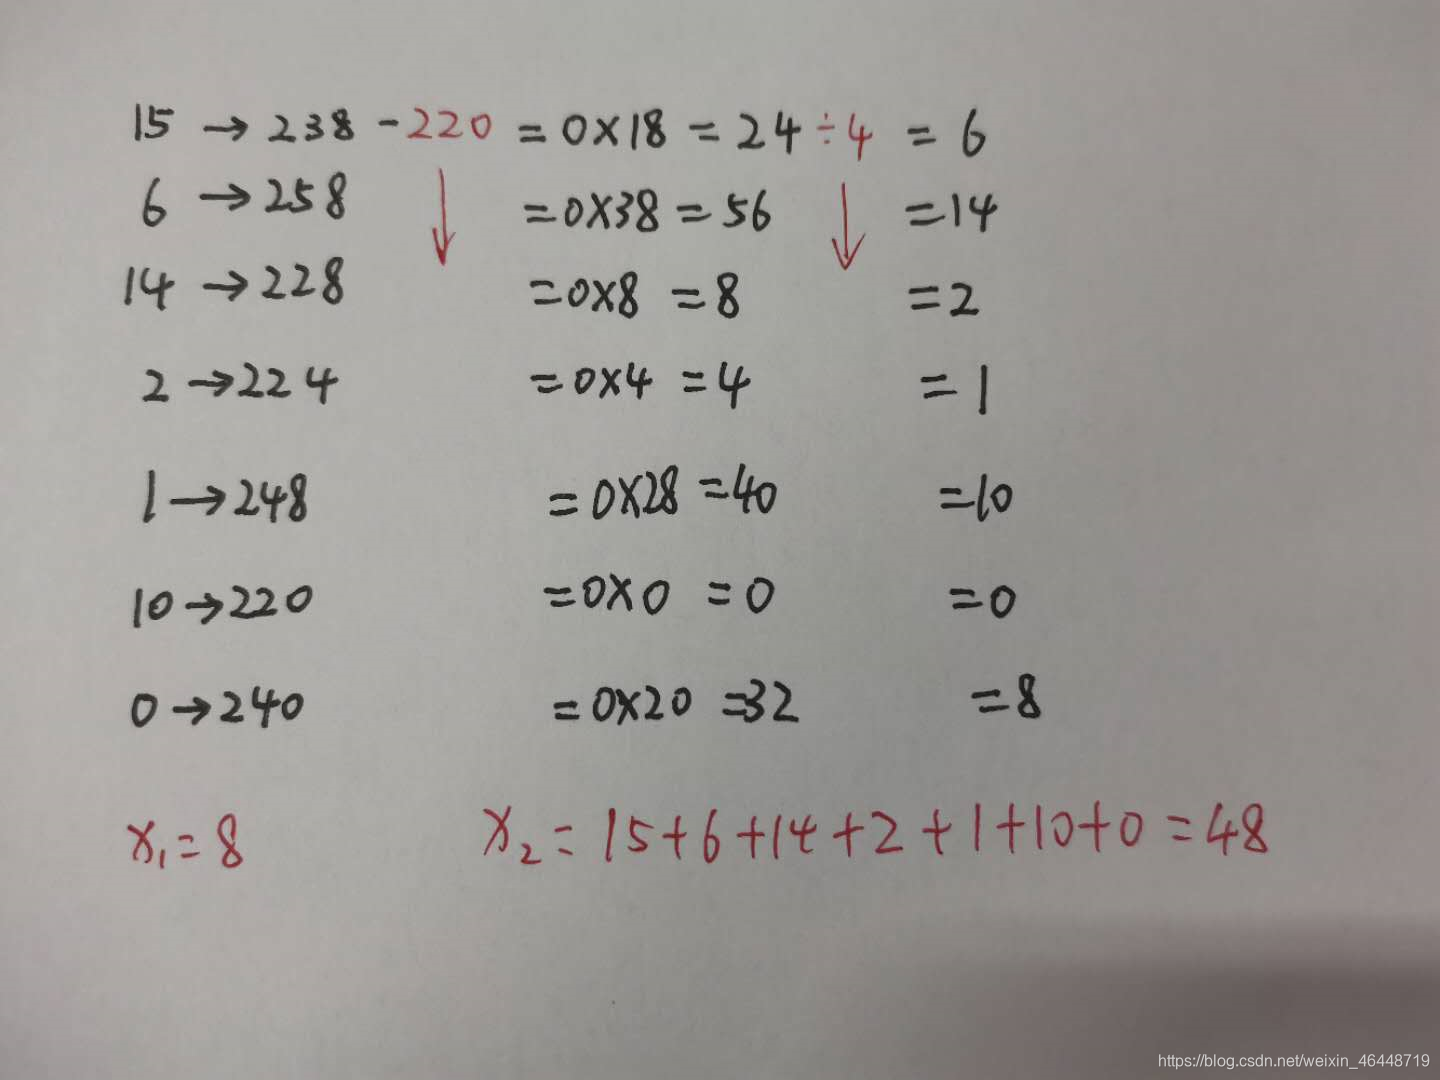 15 → 238 - 220 = 0x18 = 24 ÷ 4 = 6
6 → 258 ↓ = 0x38 = 56 ↓ = 14
14 → 228 = 0x8 = 8 = 2
2 → 224 = 0x4 = 4 = 1
1 → 248 = 0x28 = 40 = 10
10 → 220 = 0x0 = 0 = 0
0 → 240 = 0x20 = 32 = 8
x₁ = 8 x₂ = 15+6+14+2+1+10+0 = 48
https://blog.csdn.net/weixin_46448719